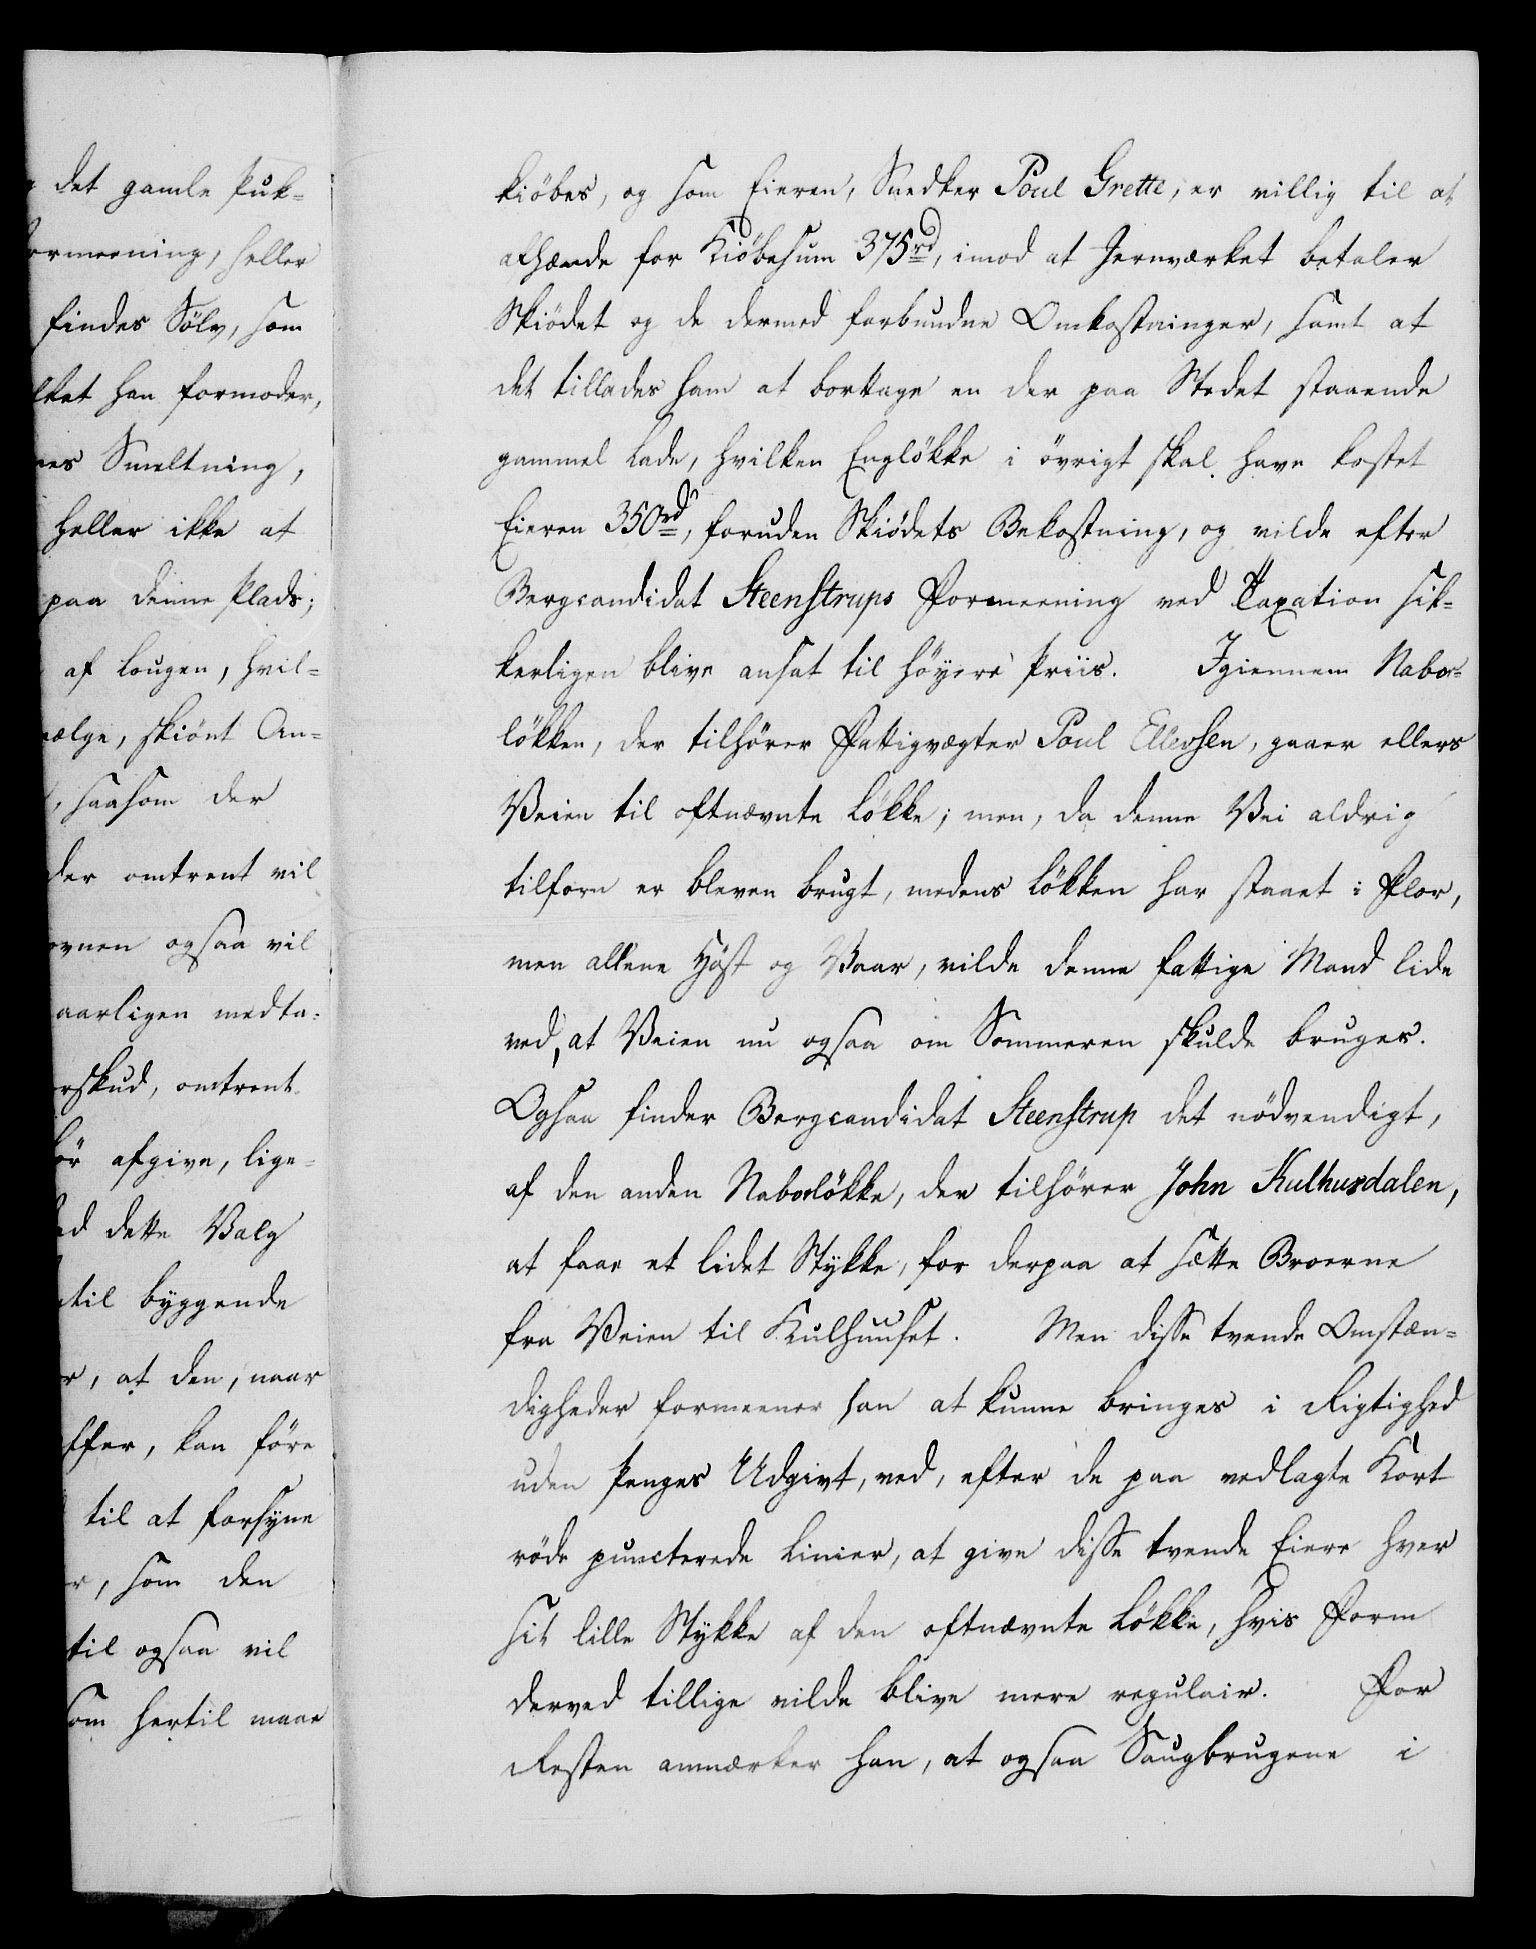 det gamle Puk-
ormeening, heller
findes Sölv, som
lket han formoder,
nes Smeltning,
heller ikke at
paa denne Plads;
af Lougen, hvil-
vælge, skiönt An-
, saasom der
der omtrent vil
ovnen ogsaa vil
aarligen medta-
rskud, omtrent
bör afgive, lige-
ed dette Valg
til byggende
r, at den, naar
ffer, kan före
til at forsyne
r, som den
til ogsaa vil
som hertil maae
kiöbes, og som Eieren, Snedker Poul Grette, er villig til at
afhænde for Kiöbesum 375rd, imod at Jernværket betaler
Skiödet og de dermed forbundne Omkostninger, samt at
det tillades ham at borttage en der paa Stedet staaende
gammel Lade, hvilken Englökke i övrigt skal have kostet
Eieren 350rd, foruden Skiödets Bekostning, og vilde efter
Bergcandidat Steenstrups Formeening ved Taxation sik-
kerligen blive ansat til höyere Priis. Igiennem Nabo-
lökken, der tilhörer Fattigvægter Poul Ellevsen, gaaer ellers
Veien til oftnævnte Lökke; men, da denne Vei aldrig
tilforn er bleven brugt, medens Lökken har staaet i Flor,
men allene Höst og Vaar, vilde denne fattige Mand lide
ved, at Veien nu ogsaa om Sommeren skulde bruges.
Ogsaa finder Bergcandidat Steenstrup det nödvendigt,
af den anden Nabolökke, der tilhörer John Kulhusdalen,
at faae et lidet Stykke, for derpaa at sætte Broerne
fra Veien til Kulhuuset. Men disse tvende Omstæn-
digheder formeener han at kunne bringes i Rigtighed
uden Penges Udgivt, ved, efter de paa vedlagte Kort
röde puncterede Linier, at give disse tvende Eiere hver
sit lille Stykke af den oftnævnte Lökke, hvis Form
derved tillige vilde blive mere regulair. For
Resten anmærker han, at ogsaa Saugbrugene i